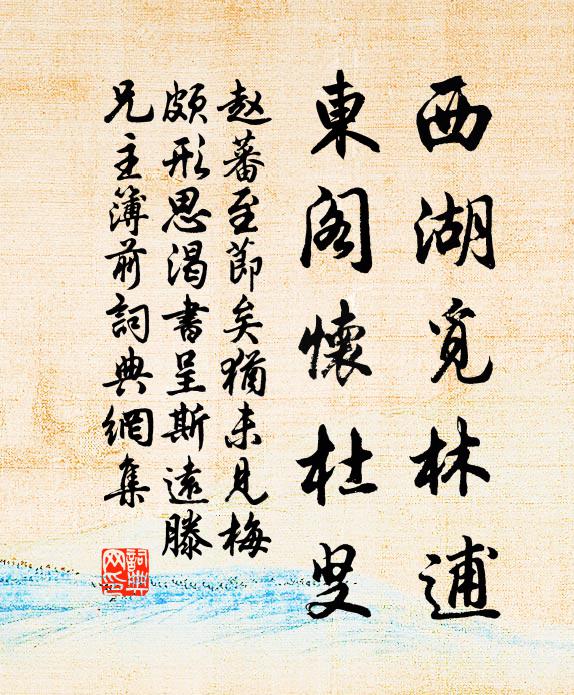 西湖覓林逋
東閣懷杜叟
赵蕃至節矣猶未見梅
頗形思渴書呈斯遠滕
兄主簿前詞典網集
詞典
网印